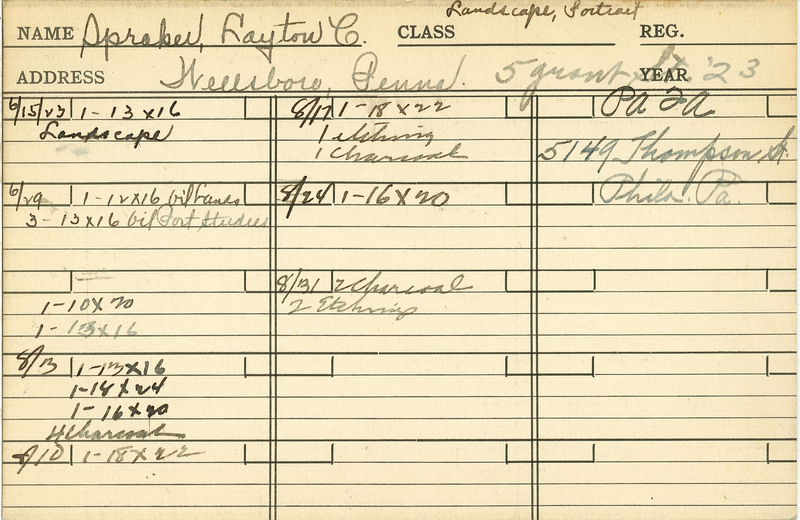 Landscape, Portrait
NAME Spraker, Layton C. CLASS REG.
ADDRESS Wellsboro, Penna. 5 Grant St. YEAR '23
6/15/23 1-13x16
Landscape
6/29 1-12x16 Oil Lands
3-13x16 Oil Port Studies
1-10x20
1-13x16
8/3 1-13x16
1-18x24
1-16x20
4 Charcoal
8/10 1-18x22
8/17 1-18x22
1 etching
1 Charcoal
8/24 1-16x20
8/31 2 Charcoal
2 Etching
PAFA
5149 Thompson St.
Phila. Pa.